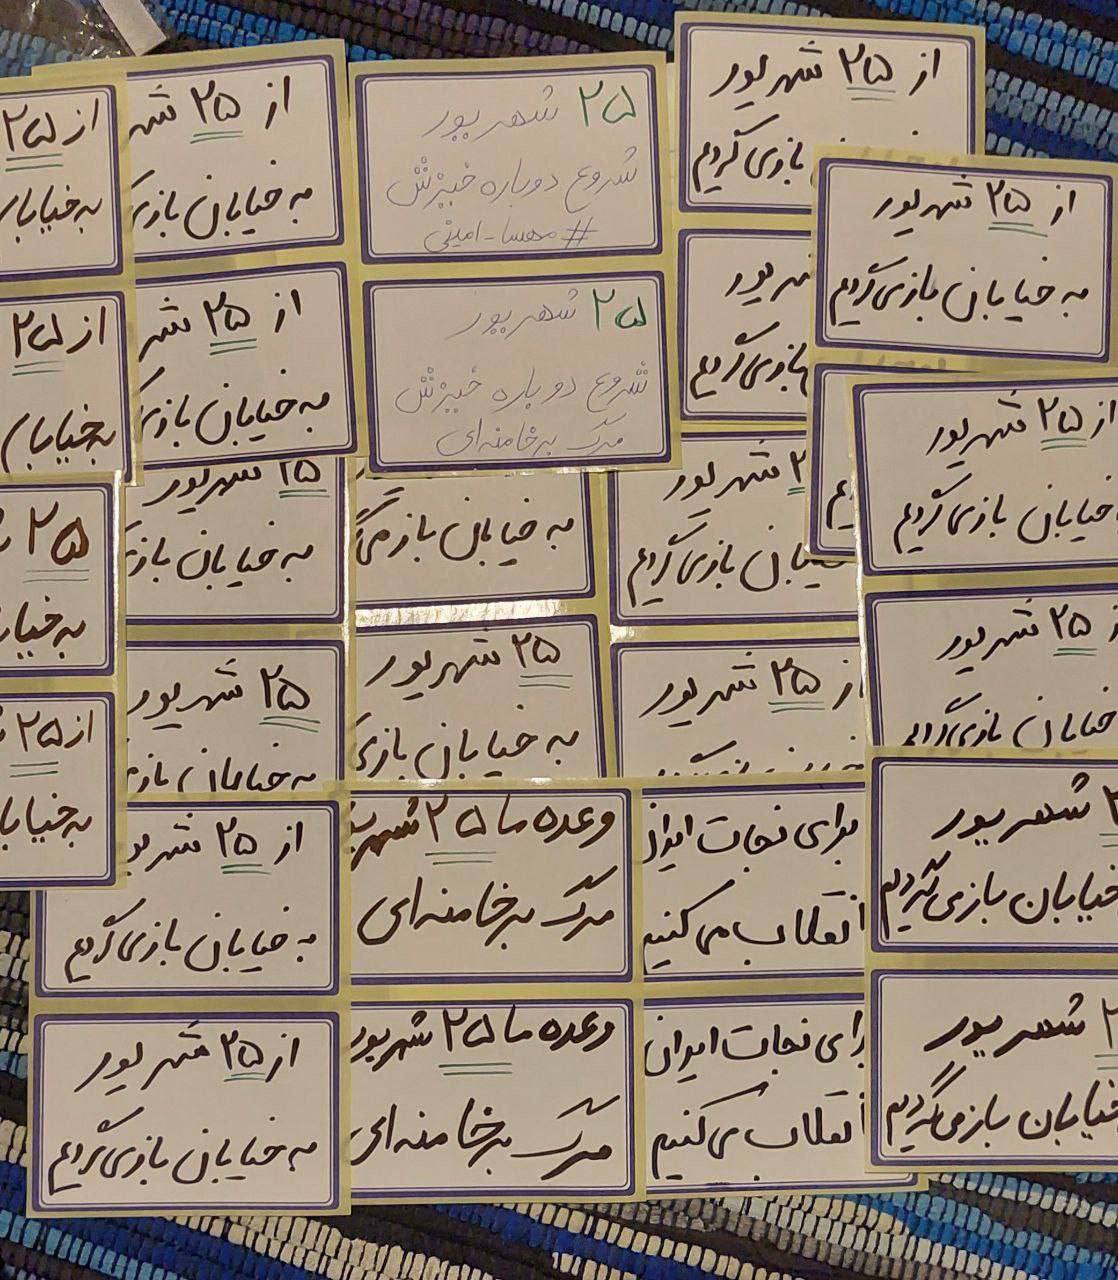 از ۲۵
به خیابان
از ۲۵
به خیابان
۲۵
از ۲۵
از ۲۵ شهر
به خیابان بازی
از ۲۵ شهر
به خیابان بازی
۲۵ شهریور
شروع دوباره خیزش
#مهسا_امینی
۲۵ شهریور
شروع دوباره خیزش
مرگ بر خامنه‌ای
از ۲۵ شهریور
بازمی‌گردیم
شهریور
بازمی‌گردیم
از ۲۵ شهریور
به خیابان بازمی‌گردیم
از ۲۵ شهریور
خیابان بازمی‌گردیم
۲۵ شهریور
خیابان بازمی‌گردیم
۲۵ شهریور
به خیابان باز
به خیابان بازمی‌گ
شهریور
بازمی‌گردیم
۲۵ شهریور
به خیابان باز
۲۵ شهریور
به خیابان بازی
از ۲۵ شهریور
از ۲۵ شهریو
به خیابان بازمی‌گردیم
وعده ما ۲۵ شهریو
مرگ بر خامنه‌ای
برای نجات ایران
انقلاب می‌کنیم
شهریور
خیابان بازمی‌گردیم
از ۲۵ شهریور
به خیابان بازمی‌گردیم
وعده ما ۲۵ شهریور
مرگ بر خامنه‌ای
رای نجات ایران
انقلاب می‌کنیم
شهریور
خیابان بازمی‌گردیم